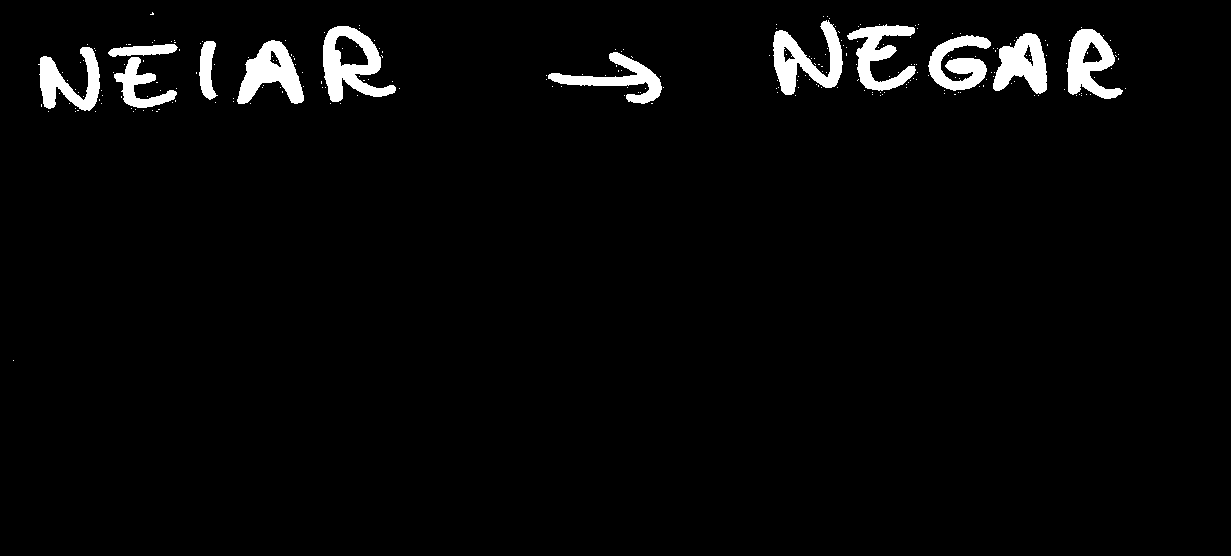 NEIAR → NEGAR